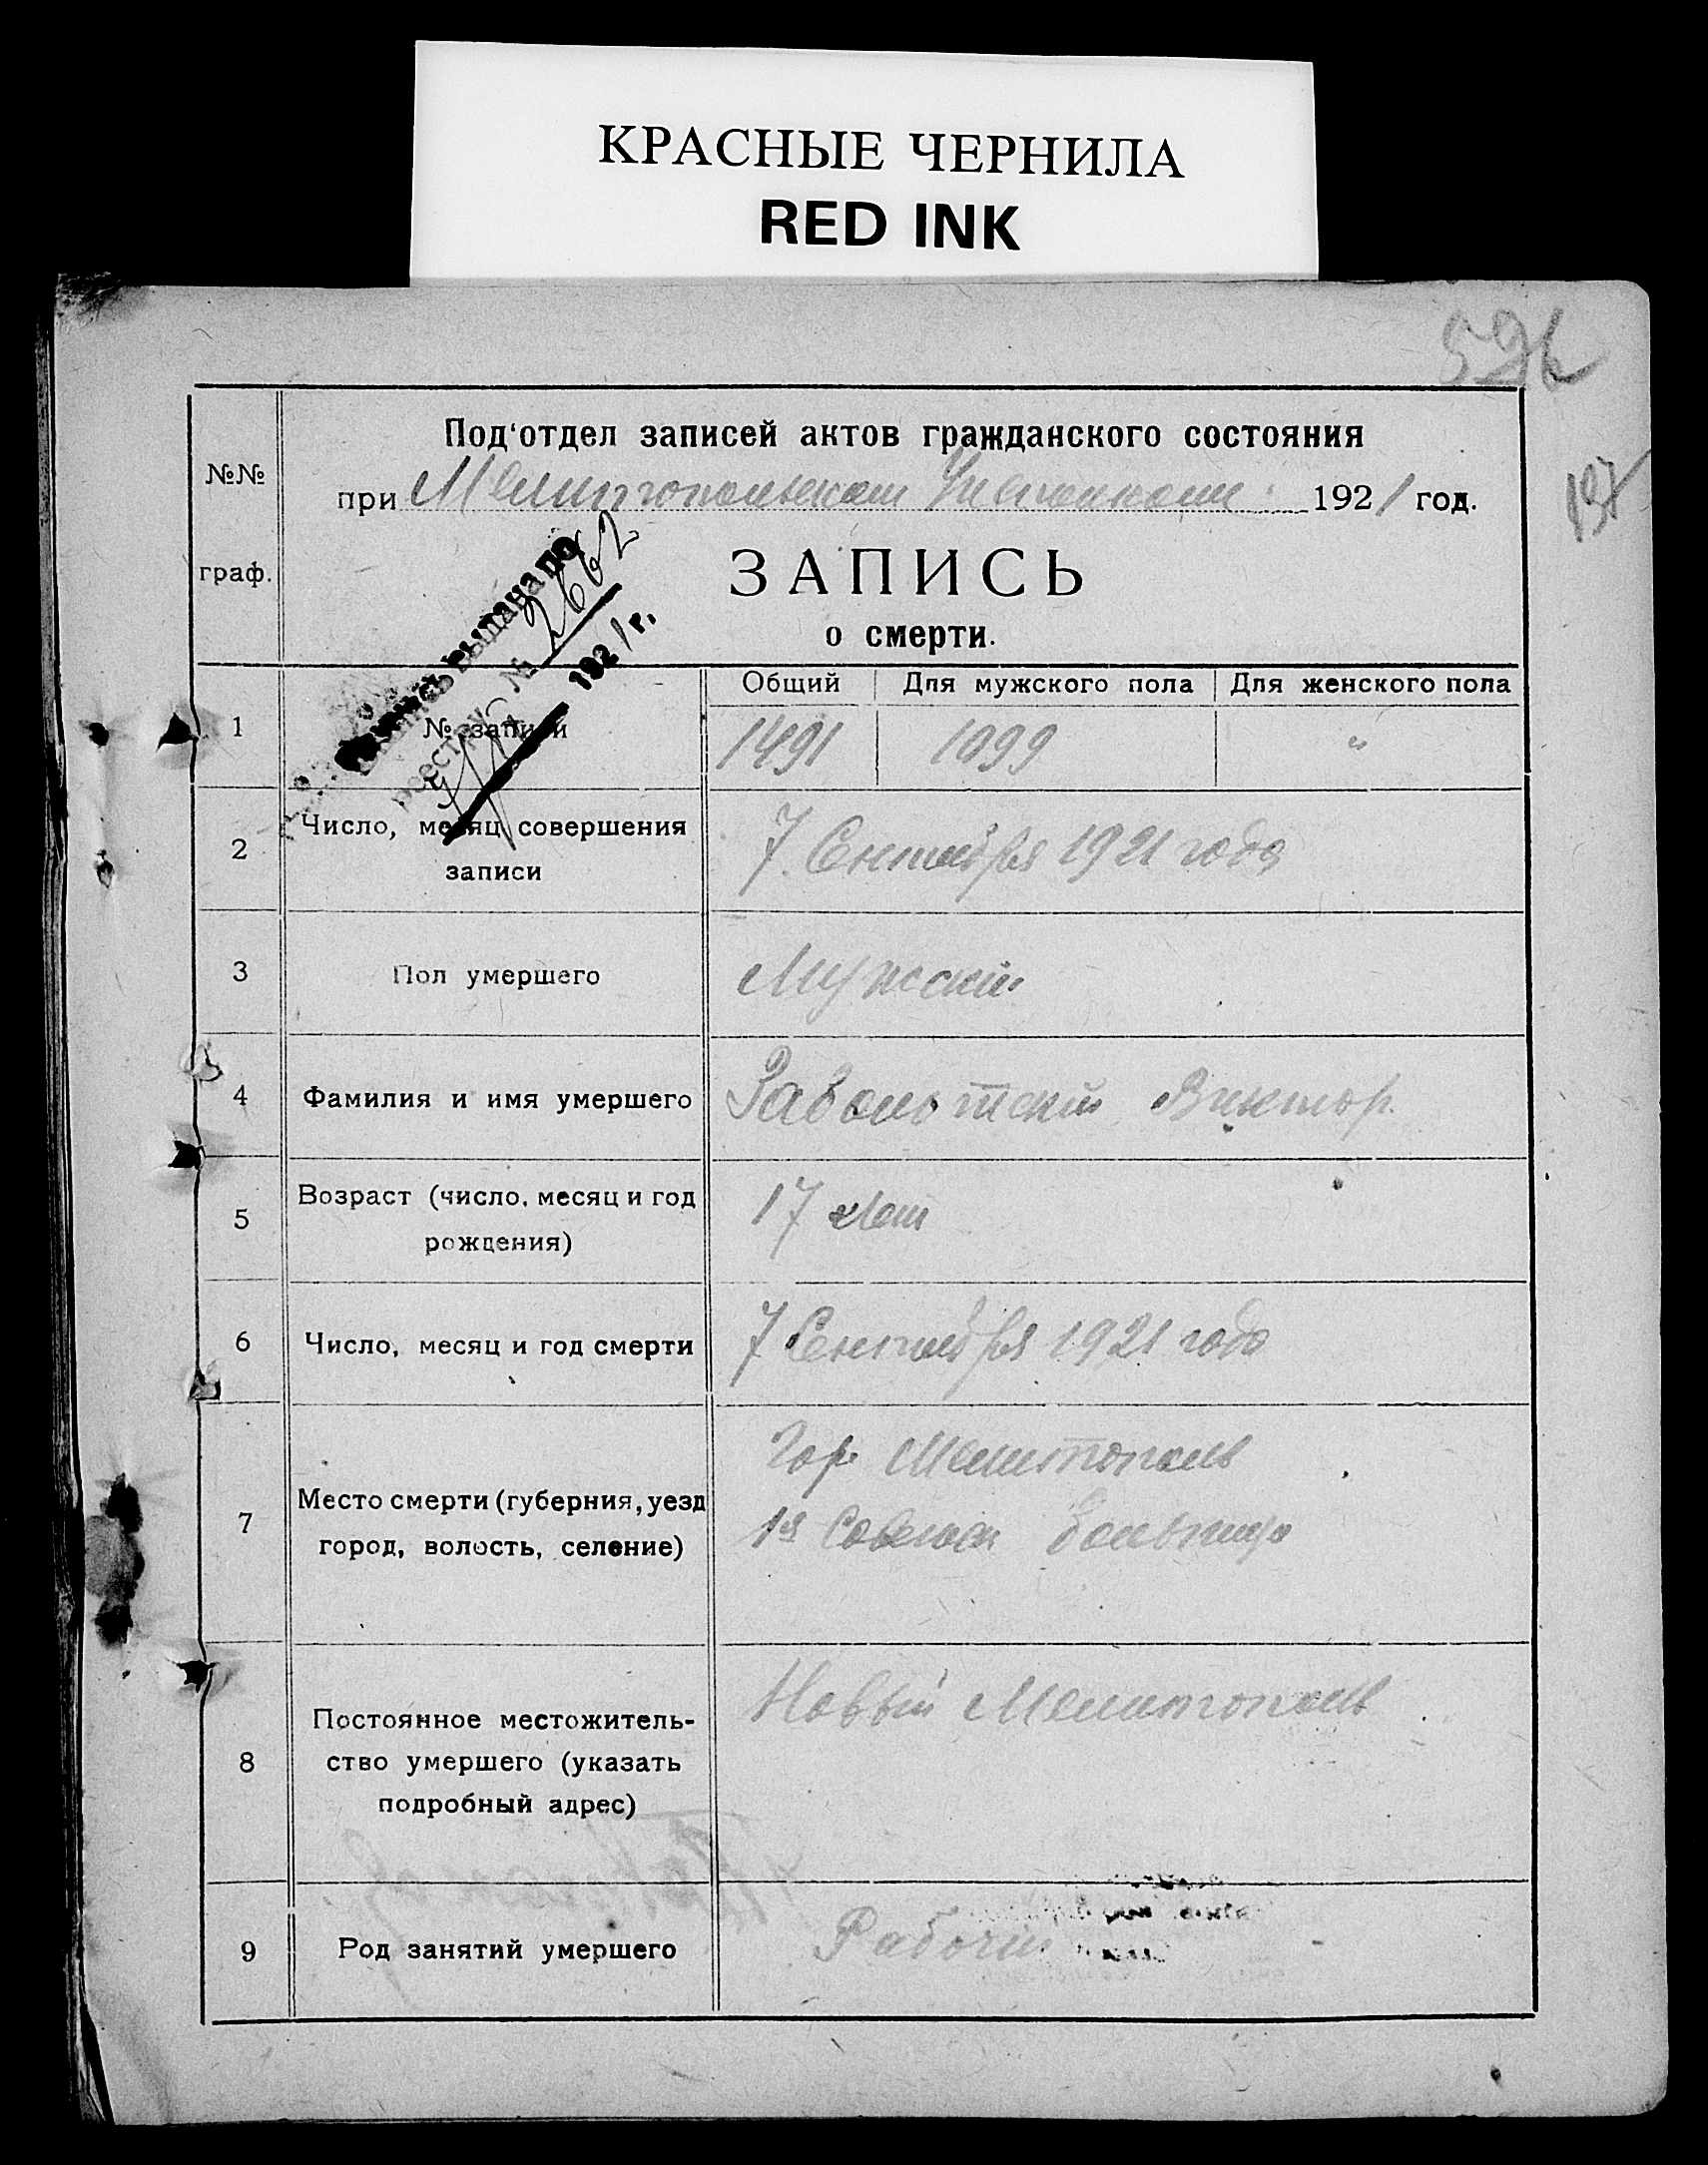 КРАСНЫЕ ЧЕРНИЛА
RED INK
Под'отдел записей актов гражданского состояния
№№
при Мелитопольском 1921 год.
граф.
ЗАПИСЬ
о смерти.
выдана по
реестру № 2662
1921 г.
Общий Для мужского пола Для женского пола
1 № записи 1491 1099 "
2 Число, месяц совершения
записи
7 Сентября 1921 года
3 Пол умершего Мужской
4 Фамилия и имя умершего Заболотский Виктор.
5 Возраст (число, месяц и год
рождения)
17 лет
6 Число, месяц и год смерти 7 Сентября 1921 года
7 Место смерти (губерния, уезд
город, волость, селение)
Гор. Мелитополь
1я Советск больница
8 Постоянное местожитель-
ство умершего (указать
подробный адрес)
Новый Мелитополь
9 Род занятий умершего Рабочий